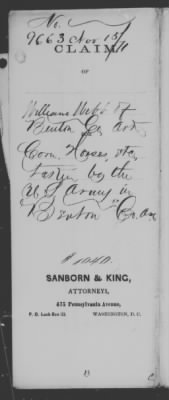 No.
9663 Nov 15/71
CLAIM
OF
Williams
Benton Co. Ark
Corn, Horses, etc,
taken by the
U S Army in
Benton Co. Ark
SANBORN & KING,
ATTORNEYS,
475 Pennsylvania Avenue,
P. O. Lock Box 33 WASHINGTON, D. C.